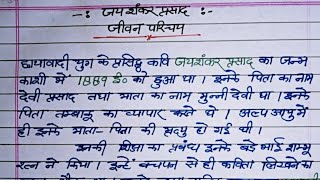 -: जयशंकर प्रसाद :-
जीवन परिचय
छायावादी युग के प्रसिद्ध कवि जयशंकर प्रसाद का जन्म
काशी में 1889 ई० को हुआ था। इनके पिता का नाम
देवी प्रसाद तथा माता का नाम मुन्नी देवी था। इनके
पिता तम्बाकू का व्यापार करते थे। अल्प आयु में
ही इनके माता-पिता की मृत्यु हो गई थी।
इनकी शिक्षा का प्रबंध इनके बड़े भाई शम्भू
रत्न ने किया। इन्हें बचपन से ही कविता लिखने का